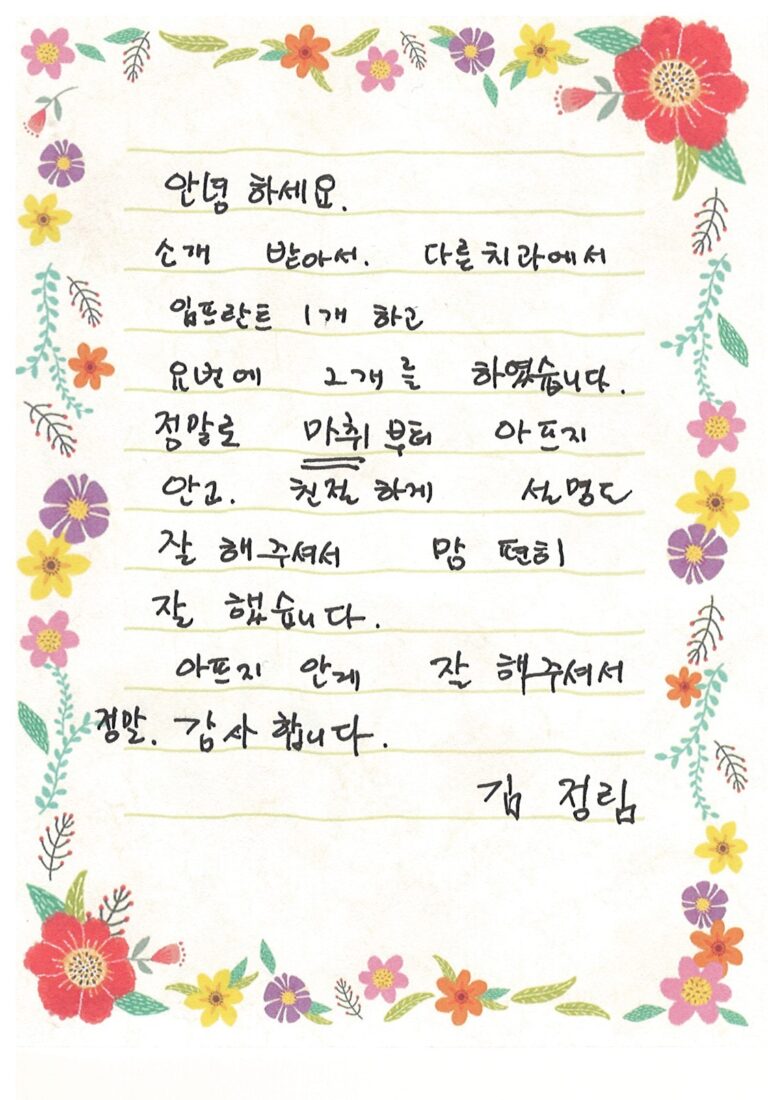 안녕 하세요.
소개 받아서. 다른치과에서
임프란트 1개 하고
요번에 2개를 하였습니다.
정말로 마취부터 아프지
안고. 친절하게 설명도
잘 해주셔서 맘 편히
잘 했습니다.
아프지 안게 잘 해주셔서
정말. 감사합니다.
김 정림